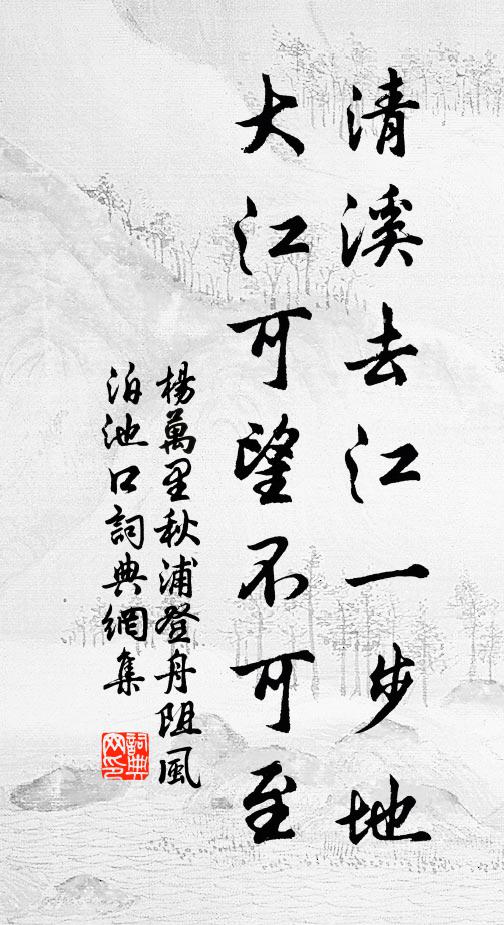 清溪去江一步地
大江可望不可至
楊萬里秋浦登舟阻風
泊池口詞典網集
詞典
网印